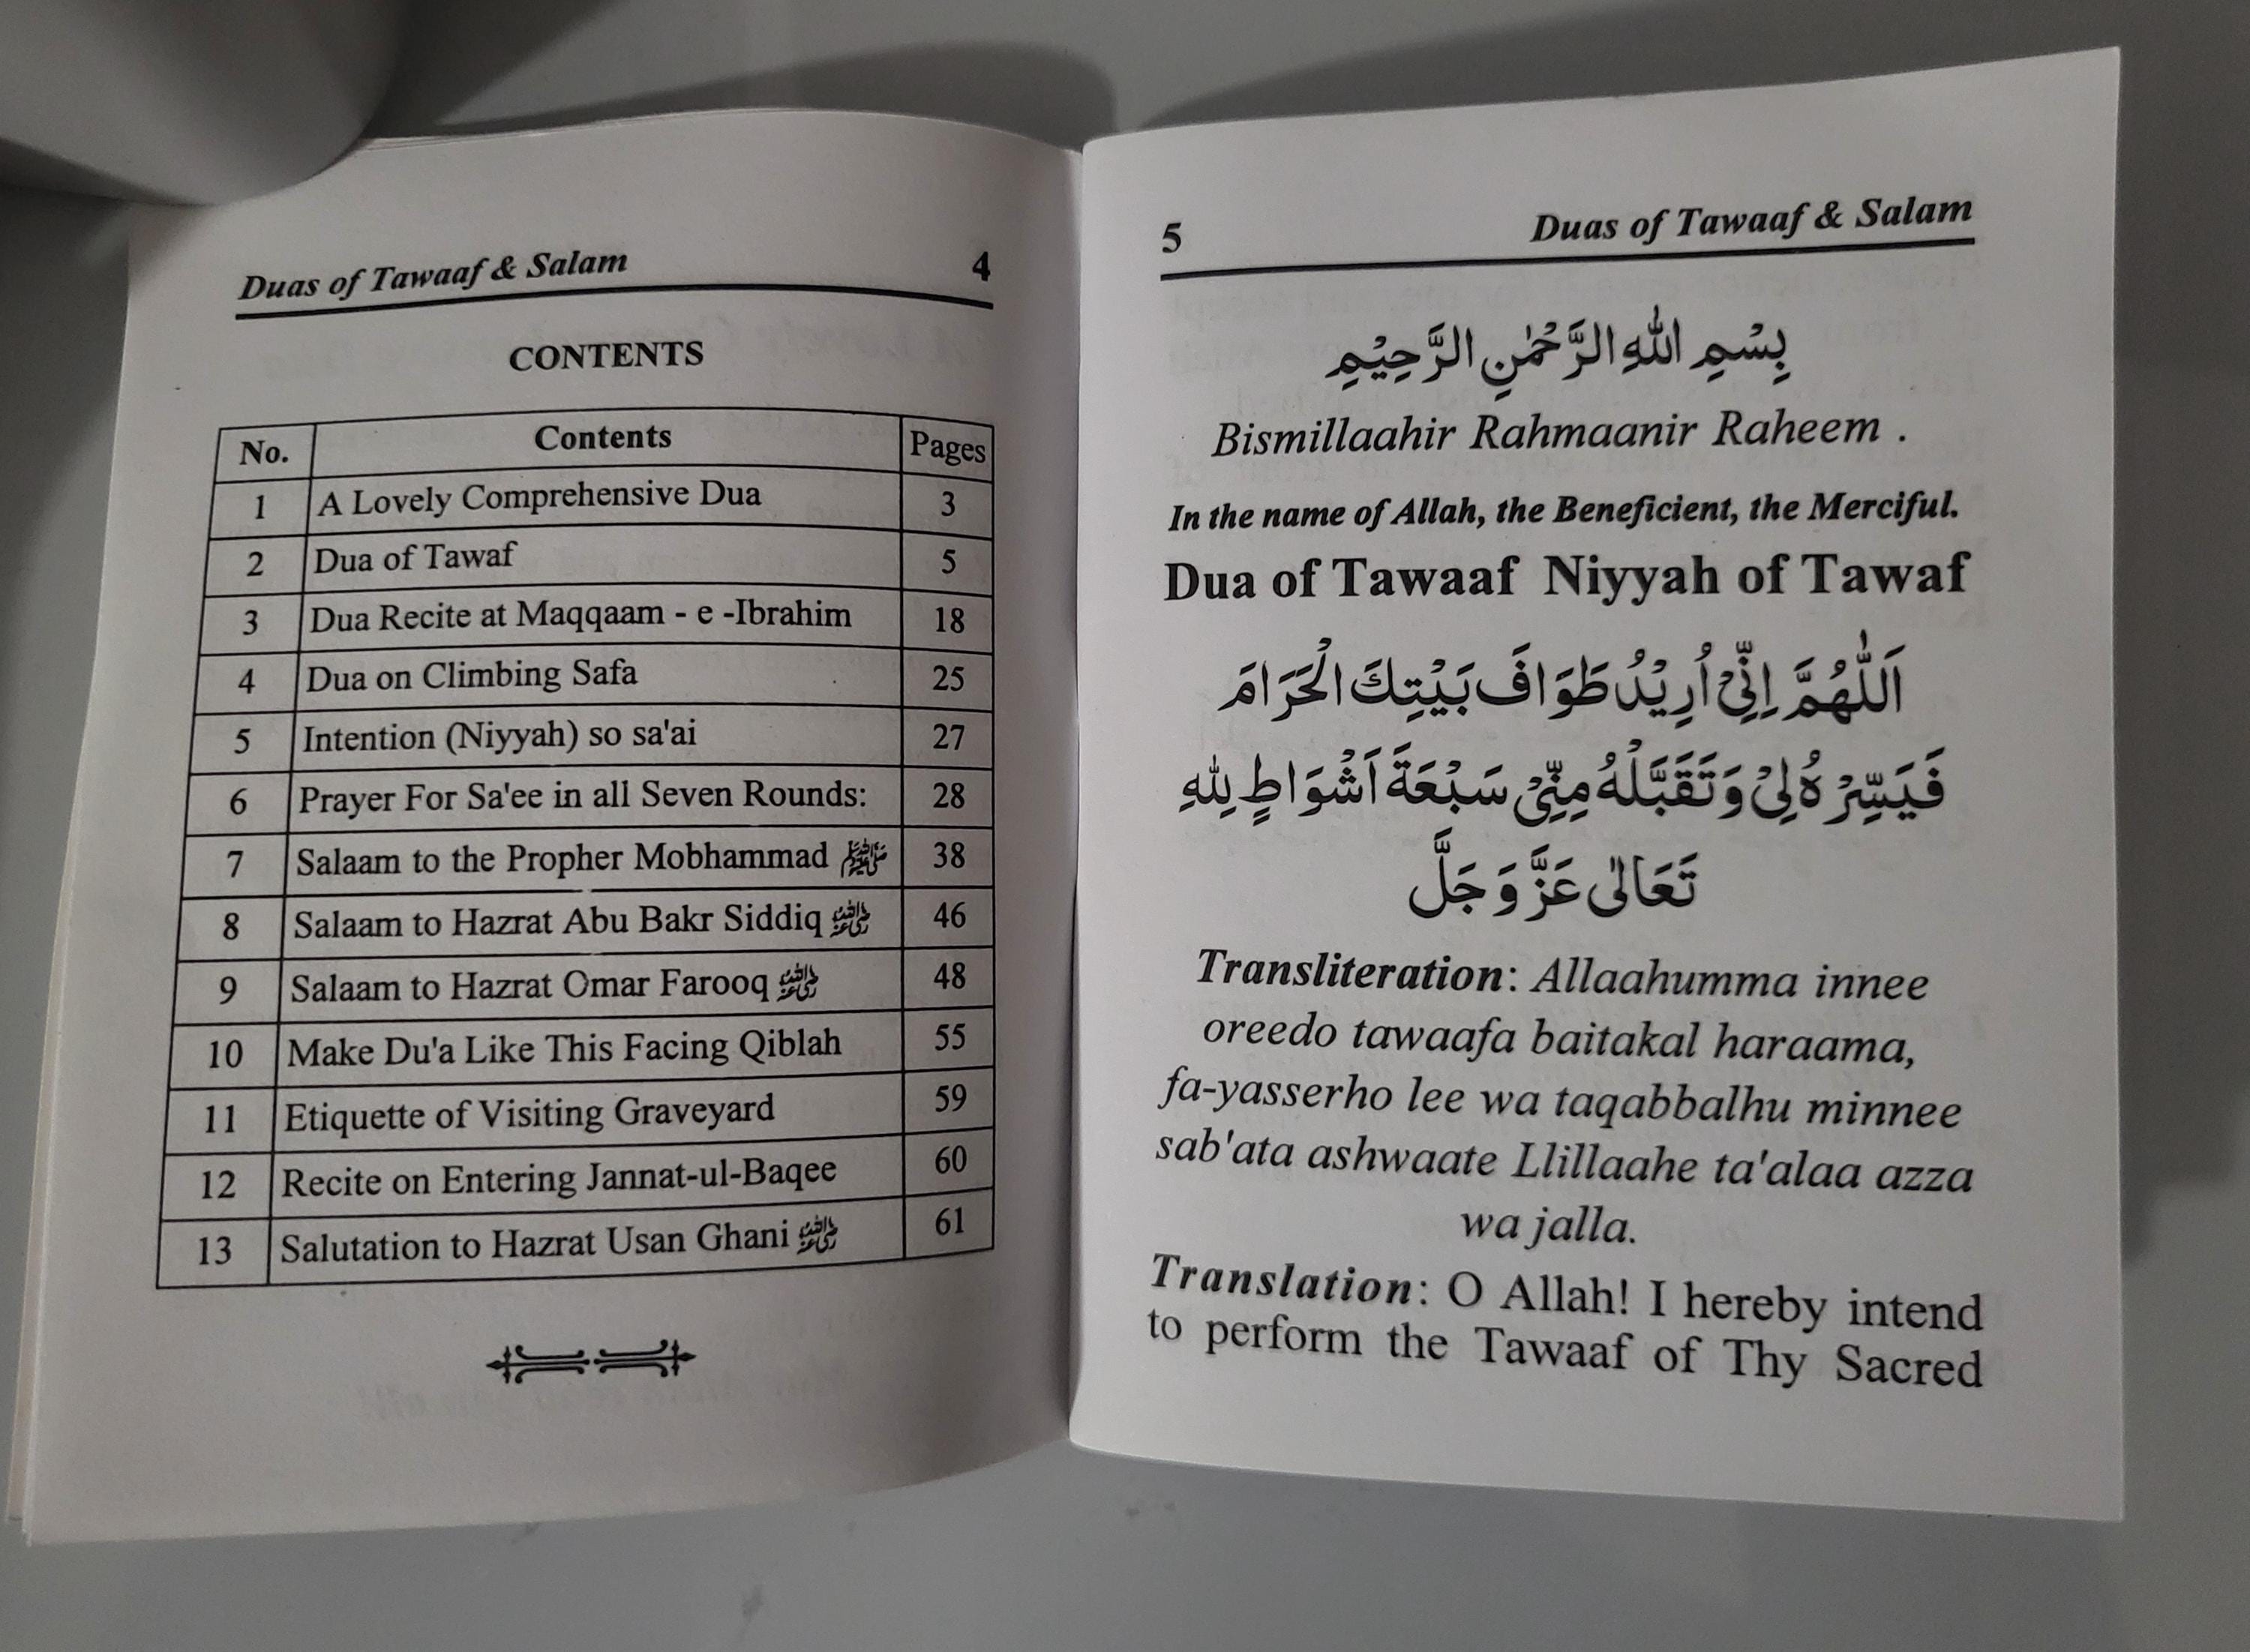 Duas of Tawaaf & Salam 4
CONTENTS
No. Contents Pages
1 A Lovely Comprehensive Dua 3
2 Dua of Tawaf 5
3 Dua Recite at Maqqaam - e -Ibrahim 18
4 Dua on Climbing Safa 25
5 Intention (Niyyah) so sa'ai 27
6 Prayer For Sa'ee in all Seven Rounds: 28
7 Salaam to the Propher Mobhammad ﷺ 38
8 Salaam to Hazrat Abu Bakr Siddiq رضي الله عنه 46
9 Salaam to Hazrat Omar Farooq رضي الله عنه 48
10 Make Du'a Like This Facing Qiblah 55
11 Etiquette of Visiting Graveyard 59
12 Recite on Entering Jannat-ul-Baqee 60
13 Salutation to Hazrat Usan Ghani رضي الله عنه 61
5 Duas of Tawaaf & Salam
بِسْمِ اللهِ الرَّحْمٰنِ الرَّحِيْمِ
Bismillaahir Rahmaanir Raheem .
In the name of Allah, the Beneficient, the Merciful.
Dua of Tawaaf Niyyah of Tawaf
اَللّٰهُمَّ اِنِّيْ اُرِيْدُ طَوَافَ بَيْتِكَ الْحَرَامَ
فَيَسِّرْهُ لِيْ وَتَقَبَّلْهُ مِنِّيْ سَبْعَةَ اَشْوَاطٍ لِلّٰهِ
تَعَالٰى عَزَّ وَجَلَّ
Transliteration: Allaahumma innee
oreedo tawaafa baitakal haraama,
fa-yasserho lee wa taqabbalhu minnee
sab'ata ashwaate Llillaahe ta'alaa azza
wa jalla.
Translation: O Allah! I hereby intend
to perform the Tawaaf of Thy Sacred